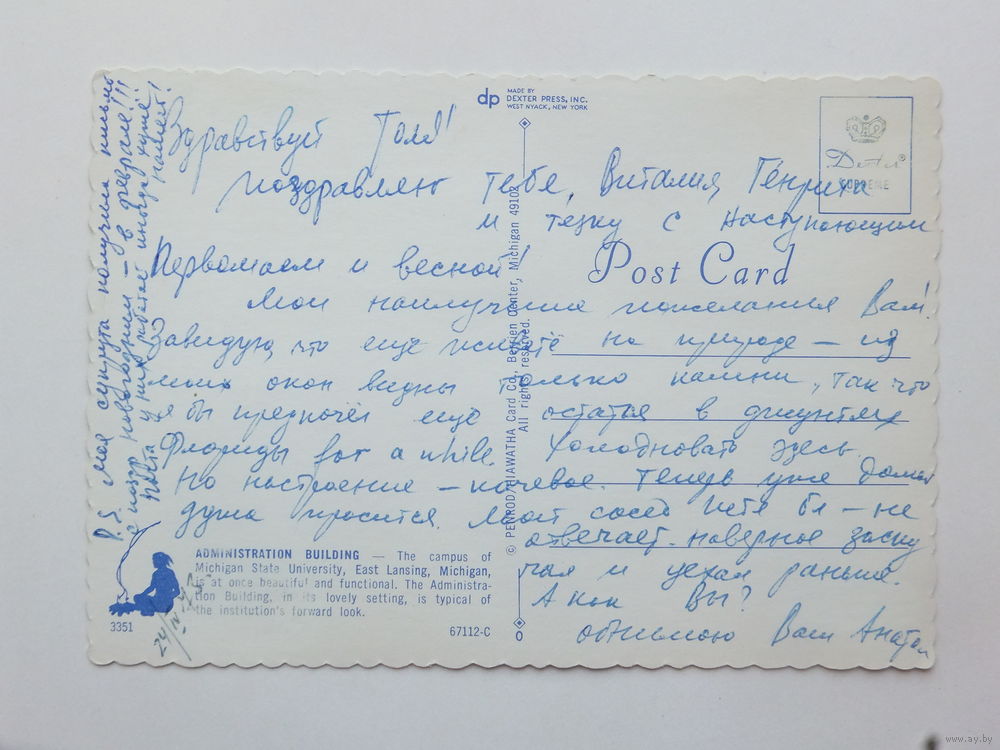 dp MADE BY
DEXTER PRESS, INC.
WEST NYACK, NEW YORK
Dexter®
SUPREME
Post Card
Здравствуй Толя!
поздравляю тебе, Виталия, Генриха
и тезку с наступающим
Первомаем и весной!
Мои наилучшие пожелания Вам!
Завидую, что еще на природе – из
моих окон видны только камни, так что
я бы предпочёл еще остаться в джунглях
Флориды for a while. Холодновать здесь.
Но настроение – кочевое. Теперь уже домой
душа просится. Мой сосед Петя Бл – не
отвечает. наверное заску
чал и уехал раньше.
А как Вы?
обнимаю Ваш Анатол
P.S. моя супруга получила письмо
с позд новогодним – в феврале!!!
почта у них работает иногда хуже
нашей!
© PENROD/HIAWATHA Card Co., Berrien Center, Michigan 49102
All rights reserved.
ADMINISTRATION BUILDING — The campus of
Michigan State University, East Lansing, Michigan,
is at once beautiful and functional. The Administra-
tion Building, in its lovely setting, is typical of
the institution's forward look.
3351
67112-C
0
www.ay.by